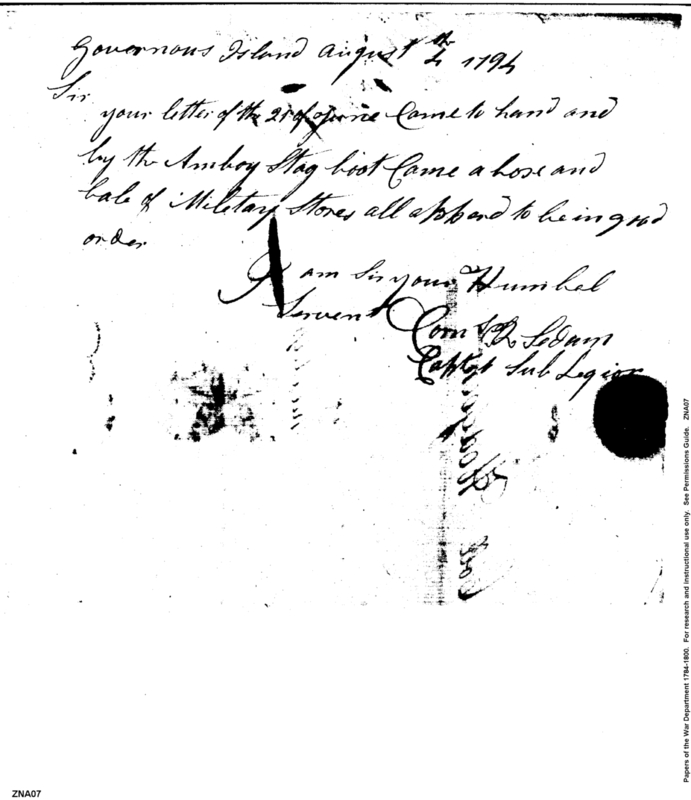 Governous Island August 4th 1794
Sir
your letter of the 25 of June Came to hand and
by the Amboy Stag boot Came a boxe and
bale of Military Stores all appeard to be in good
order
I am Sir your Humbel
Servent
Corn R Sedam
Capt 1st Sub Legion
Papers of the War Department 1784-1800. For research and instructional use only. See Permissions Guide. ZNA07
ZNA07